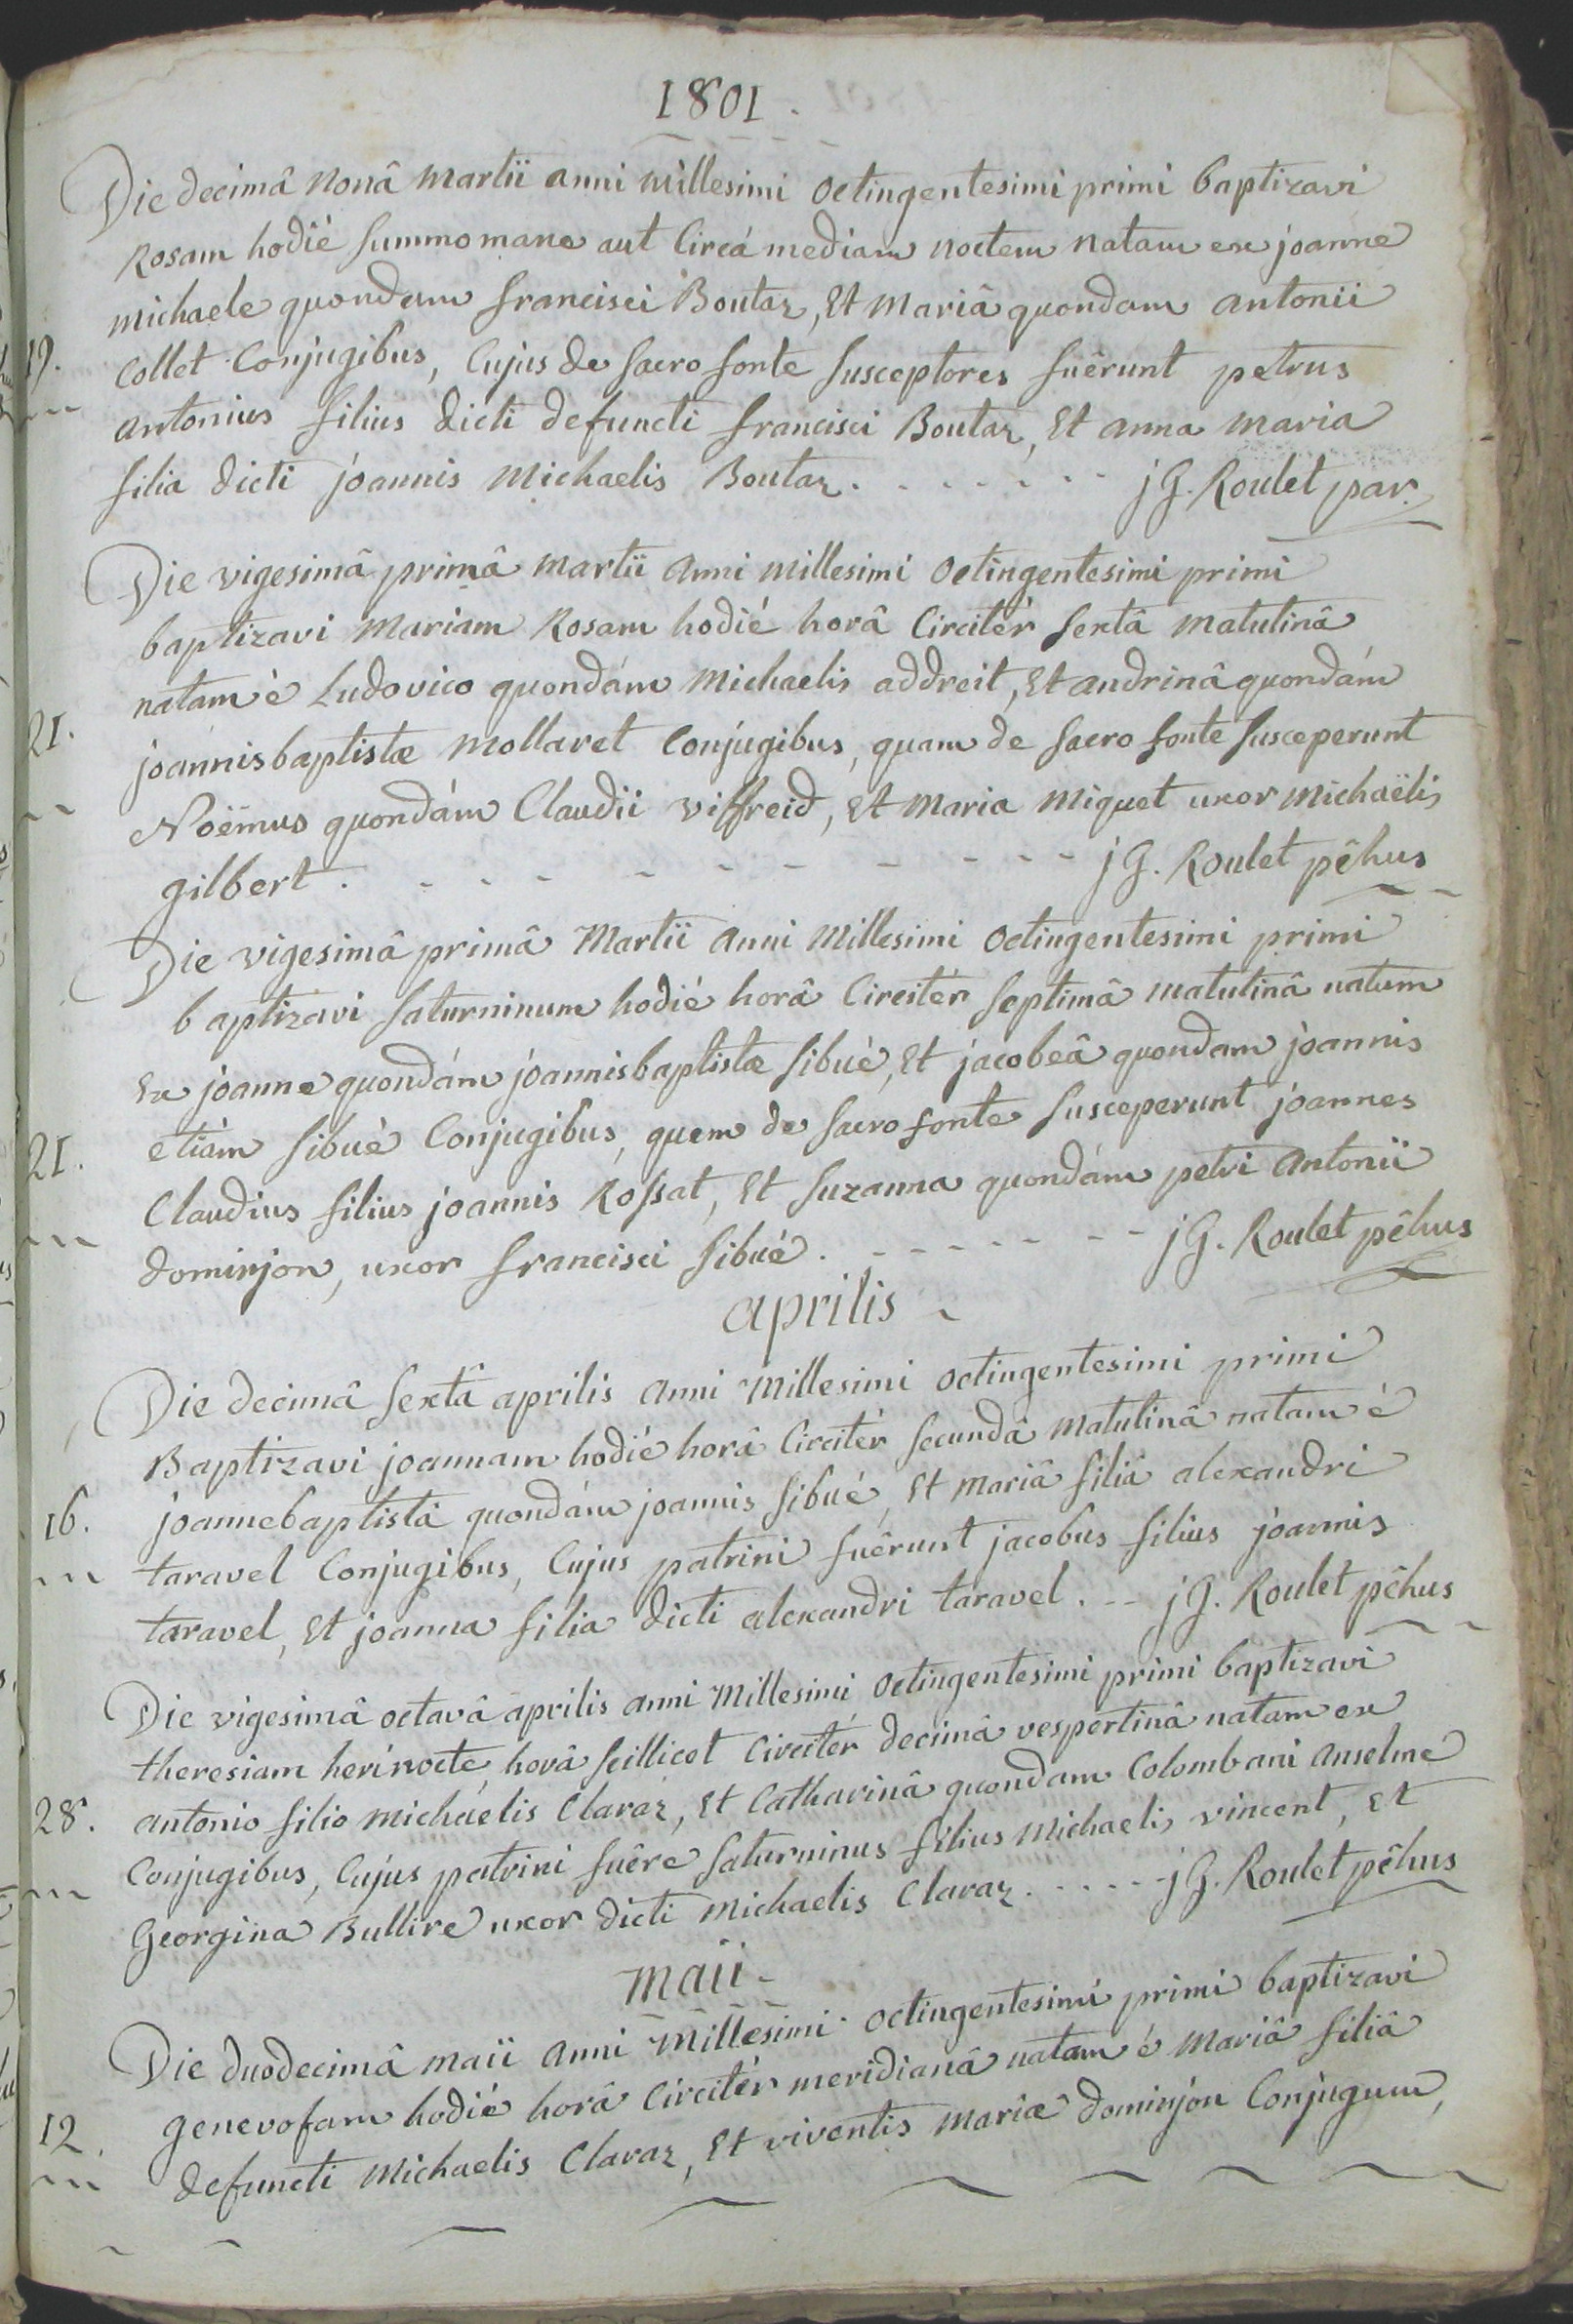 1801.
Die decimâ nonâ martii anni millesimi octingentesimi primi baptizavi
Rosam hodiè summo mane aut Circá mediam noctem natam ex joanne
michaele quondam francisci Boutaz, Et mariâ quondam antonii
19.
Collet Conjugibus, Cujus de sacro fonte susceptores fuêrunt petrus
antonius filius dicti defuncti francisci Boutaz, Et anna maria
filia dicti joannis michaelis Boutaz. jG. Roulet par.
Die vigesimâ primâ martii anni millesimi octingentesimi primi
baptizavi mariam Rosam hodié horâ Circitér sextâ matutinâ
natam è Ludovico quondám michaelis addreit, Et andrinâ quondám
21.
joannisbaptistæ mollaret Conjugibus, quam de sacro fonte susceperunt
Noëmus quondám Claudii viffreid, Et maria miquet uxor michaëlis
gilbert. jG. Roulet pêhus
Die vigesimâ primâ Martii anni millesimi octingentesimi primi
baptizavi saturninum hodié horâ Circitér septimâ matutinâ natum
Ex joanne quondám joannisbaptistæ sibué, Et jacobeâ quondam joannis
21.
etiám sibué Conjugibus, quem de sacro fonte susceperunt joannes
Claudius filius joannis Rossat, Et suzanna quondám petri antonii
dominjon, uxor francisci sibué. jG. Roulet pêhus
aprilis
Die decimâ sextâ aprilis anni Millesimi octingentesimi primi
Baptizavi joannam hodié horâ Circitér secundâ matutinâ natam é
16.
joannebaptistâ quondám joannis sibué, Et mariâ filiâ alexandri
taravel Conjugibus, Cujus patrini fuêrunt jacobus filius joannis
taravel, Et joanna filia dicti alexandri taravel. jG. Roulet pêhus
Die vigesimâ octavâ aprilis anni Millesimi octingentesimi primi baptizavi
theresiam herí nocte, horâ scillicet Circitér decimâ vespertinâ natam ex
28.
antonio filio michaëlis Claraz, Et Catharinâ quondam Colombani anselme
Conjugibus, Cujus patrini fuêre saturninus filius michaelis vincent, Et
Georgina Bullire uxor dicti michaelis Claraz. jG. Roulet pêhus
maii
Die duodecimâ maii anni Millesimi octingentesimi primi baptizavi
genevosam hodié horâ Circitér meridianâ natam é mariâ filiâ
12.
defuncti michaelis Claraz, Et viventis mariæ dominjon Conjugum,